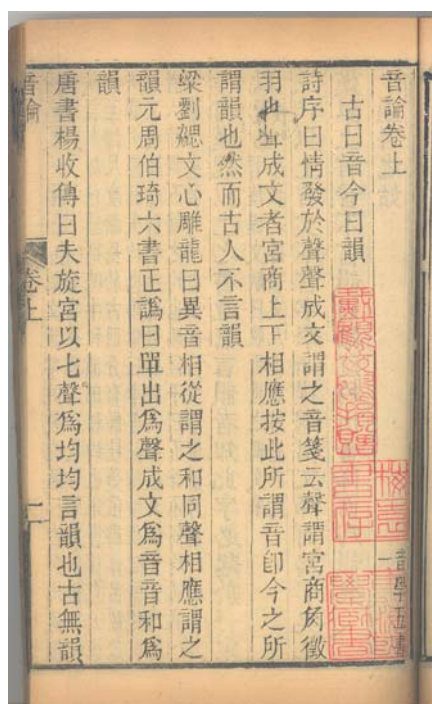 音論卷上
古曰音今曰韻
詩序曰情發於聲聲成文謂之音箋云聲謂宮商角徵
羽也聲成文者宮商上下相應按此所謂音卽今之所
謂韻也然而古人不言韻
梁劉勰文心雕龍曰異音相從謂之和同聲相應謂之
韻元周伯琦六書正譌曰單出爲聲成文爲音音和爲
韻
唐書楊收傳曰夫旋宮以七聲爲均均言韻也古無韻
音論
卷上
一
音學五書